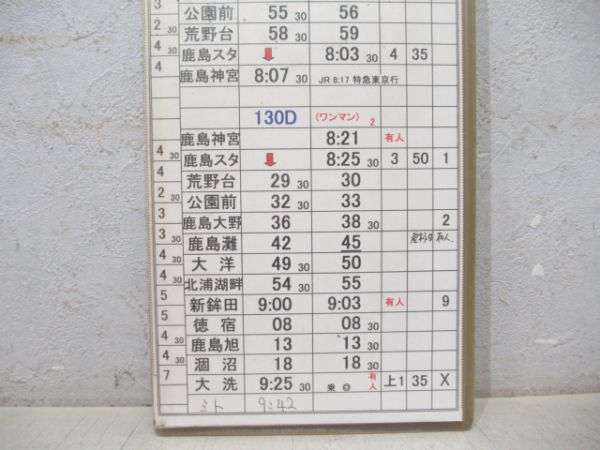 3
公園前 55 30 56
2 30
荒野台 58 30 59
4
鹿島スタ ↓ 8:03 30 4 35
4
鹿島神宮 8:07 30 JR 8:17 特急東京行
130D (ワンマン) 2
鹿島神宮 8:21 有人
4 30
鹿島スタ ↓ 8:25 30 3 50 1
4 30
荒野台 29 30 30
2 30
公園前 32 30 33
3
鹿島大野 36 38 30 2
3 30
鹿島灘 42 45
4 30
大洋 49 30 50
4 30
北浦湖畔 54 30 55
5
新鉾田 9:00 9:03 有人 9
5
徳宿 08 08 30
4 30
鹿島旭 13 13 30
4 30
涸沼 18 18 30
7
大洗 9:25 30 乗 ◎ 有人 上1 35 X
ミト 9:42